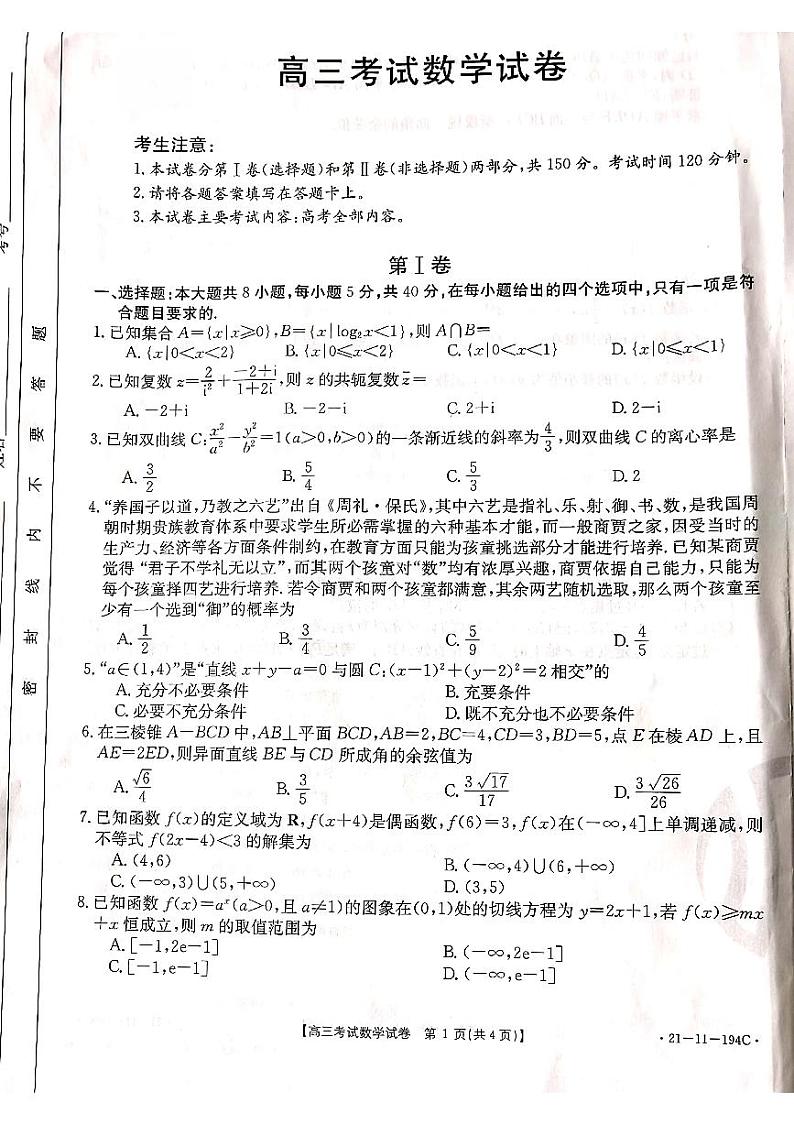 高三考试数学试卷
考生注意：
1.本试卷分第Ⅰ卷(选择题)和第Ⅱ卷(非选择题)两部分,共 150 分。考试时间 120 分钟。
2.请将各题答案填写在答题卡上。
3.本试卷主要考试内容:高考全部内容。
第Ⅰ卷
一、选择题:本大题共 8 小题,每小题 5 分,共 40 分,在每小题给出的四个选项中,只有一项是符
合题目要求的.
1.已知集合 A={x|x≥0},B={x|log₂x<1},则 A∩B=
A.{x|0<x<2} B.{x|0≤x<2} C.{x|0<x<1} D.{x|0≤x<1}
2.已知复数 z=2/i²+(-2+i)/(1+2i),则 z 的共轭复数 z̄=
A.-2+i B.-2-i C.2+i D.2-i
3.已知双曲线 C:x²/a²-y²/b²=1(a>0,b>0)的一条渐近线的斜率为4/3,则双曲线 C 的离心率是
A.3/2 B.5/4 C.5/3 D.2
4.“养国子以道,乃教之六艺”出自《周礼·保氏》,其中六艺是指礼、乐、射、御、书、数,是我国周
朝时期贵族教育体系中要求学生所必需掌握的六种基本才能,而一般商贾之家,因受当时的
生产力、经济等各方面条件制约,在教育方面只能为孩童挑选部分才能进行培养.已知某商贾
觉得“君子不学礼无以立”,而其两个孩童对“数”均有浓厚兴趣,商贾依据自己能力,只能为
每个孩童择四艺进行培养.若令商贾和两个孩童都满意,其余两艺随机选取,那么两个孩童至
少有一个选到“御”的概率为
A.1/2 B.3/4 C.5/9 D.4/5
5.“a∈(1,4)”是“直线 x+y-a=0 与圆 C:(x-1)²+(y-2)²=2 相交”的
A.充分不必要条件 B.充要条件
C.必要不充分条件 D.既不充分也不必要条件
6.在三棱锥 A-BCD 中,AB⊥平面 BCD,AB=2,BC=4,CD=3,BD=5,点 E 在棱 AD 上,且
AE=2ED,则异面直线 BE 与 CD 所成角的余弦值为
A.√6/4 B.3/5 C.3√17/17 D.3√26/26
7.已知函数 f(x)的定义域为 R,f(x+4)是偶函数,f(6)=3,f(x)在(-∞,4]上单调递减,则
不等式 f(2x-4)<3 的解集为
A.(4,6) B.(-∞,4)∪(6,+∞)
C.(-∞,3)∪(5,+∞) D.(3,5)
8.已知函数 f(x)=aˣ(a>0,且 a≠1)的图象在(0,1)处的切线方程为 y=2x+1,若 f(x)≥mx
+x 恒成立,则 m 的取值范围为
A.[-1,2e-1] B.(-∞,2e-1]
C.[-1,e-1] D.(-∞,e-1]
【高三考试数学试卷 第 1 页(共 4 页)】
·21-11-194C·
密 封 线 内 不 要 答 题